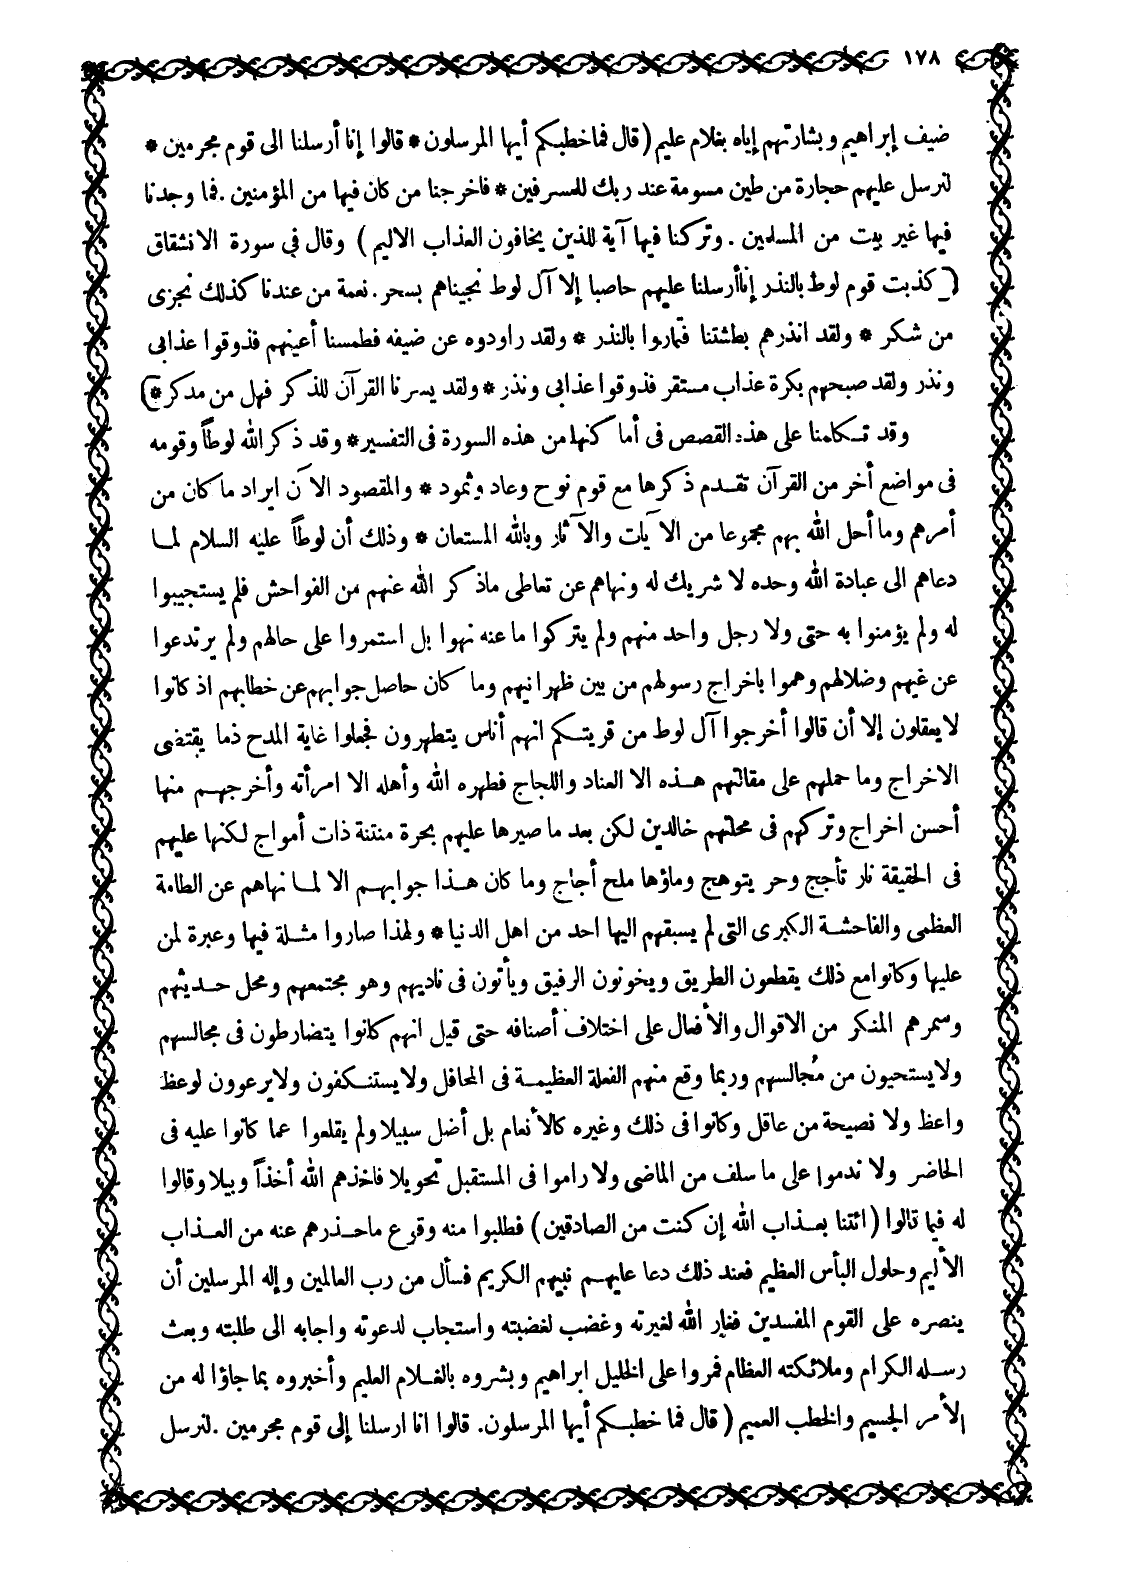 ١٧٨
ضيف إبراهيم وبشارتهم إياه بغلام عليم (قال فما خطبكم أيها المرسلون * قالوا إنا أرسلنا الى قوم مجرمين *
لنرسل عليهم حجارة من طين مسومة عند ربك للمسرفين * فاخرجنا من كان فيها من المؤمنين . فما وجدنا
فيها غير بيت من المسلمين . وتركنا فيها آية للذين يخافون العذاب الاليم ) وقال فى سورة الانشقاق
( كذبت قوم لوط بالنذر إنا أرسلنا عليهم حاصبا إلا آل لوط نجيناهم بسحر . نعمة من عندنا كذلك نجزى
من شكر * ولقد انذرهم بطشتنا فتماروا بالنذر * ولقد راودوه عن ضيفه فطمسنا أعينهم فذوقوا عذابى
ونذر ولقد صبحهم بكرة عذاب مستقر فذوقوا عذابى ونذر * ولقد يسرنا القرآن للذكر فهل من مدكر * )
وقد تكلمنا على هذه القصص فى أماكنها من هذه السورة فى التفسير * وقد ذكر الله لوطاً وقومه
فى مواضع أخر من القرآن تقدم ذكرها مع قوم نوح وعاد وثمود * والمقصود الآن ايراد ما كان من
أمرهم وما أحل الله بهم مجموعا من الآيات والآثار وبالله المستعان * وذلك أن لوطاً عليه السلام لما
دعاهم الى عبادة الله وحده لا شريك له ونهاهم عن تعاطى ماذكر الله عنهم من الفواحش فلم يستجيبوا
له ولم يؤمنوا به حتى ولا رجل واحد منهم ولم يتركوا ما عنه نهوا بل استمروا على حالهم ولم يرتدعوا
عن غيهم وضلالهم وهموا باخراج رسولهم من بين ظهرانيهم وما كان حاصل جوابهم عن خطابهم اذ كانوا
لا يعقلون إلا أن قالوا أخرجوا آل لوط من قريتكم انهم أناس يتطهرون فجعلوا غاية المدح ذما يقتضى
الاخراج وما حملهم على مقالتهم هذه الا العناد واللجاج فطهره الله وأهله الا امرأته وأخرجهم منها
أحسن اخراج وتركهم فى محلتهم خالدين لكن بعد ما صيرها عليهم بحرة منتنة ذات أمواج لكنها عليهم
فى الحقيقة نار تأجج وحر يتوهج وماؤها ملح أجاج وما كان هذا جوابهم الا لما نهاهم عن الطامة
العظمى والفاحشة الكبرى التى لم يسبقهم اليها احد من اهل الدنيا * ولهذا صاروا مثلة فيها وعبرة لمن
عليها وكانوا مع ذلك يقطعون الطريق ويخونون الرفيق ويأتون فى ناديهم وهو مجتمعهم ومحل حديثهم
وسمرهم المنكر من الاقوال والأفعال على اختلاف أصنافه حتى قيل انهم كانوا يتضارطون فى مجالسهم
ولا يستحيون من مُجالسهم وربما وقع منهم الفعلة العظيمة فى المحافل ولا يستنكفون ولا يرعوون لوعظ
واعظ ولا نصيحة من عاقل وكانوا فى ذلك وغيره كالأنعام بل أضل سبيلا ولم يقلعوا عما كانوا عليه فى
الحاضر ولا ندموا على ما سلف من الماضى ولا راموا فى المستقبل تحويلا فاخذهم الله أخذاً وبيلا وقالوا
له فيما قالوا ( ائتنا بعذاب الله إن كنت من الصادقين ) فطلبوا منه وقوع ماحذرهم عنه من العذاب
الأليم وحلول البأس العظيم فعند ذلك دعا عليهم نبيهم الكريم فسأل من رب العالمين وإله المرسلين أن
ينصره على القوم المفسدين فغار الله لغيرته وغضب لغضبته واستجاب لدعوته واجابه الى طلبته وبعث
رسله الكرام وملائكته العظام فمروا على الخليل ابراهيم وبشروه بالغلام العليم وأخبروه بما جاؤا له من
الأمر الجسيم والخطب العميم ( قال فما خطبكم أيها المرسلون. قالوا انا ارسلنا إلى قوم مجرمين .لنرسل